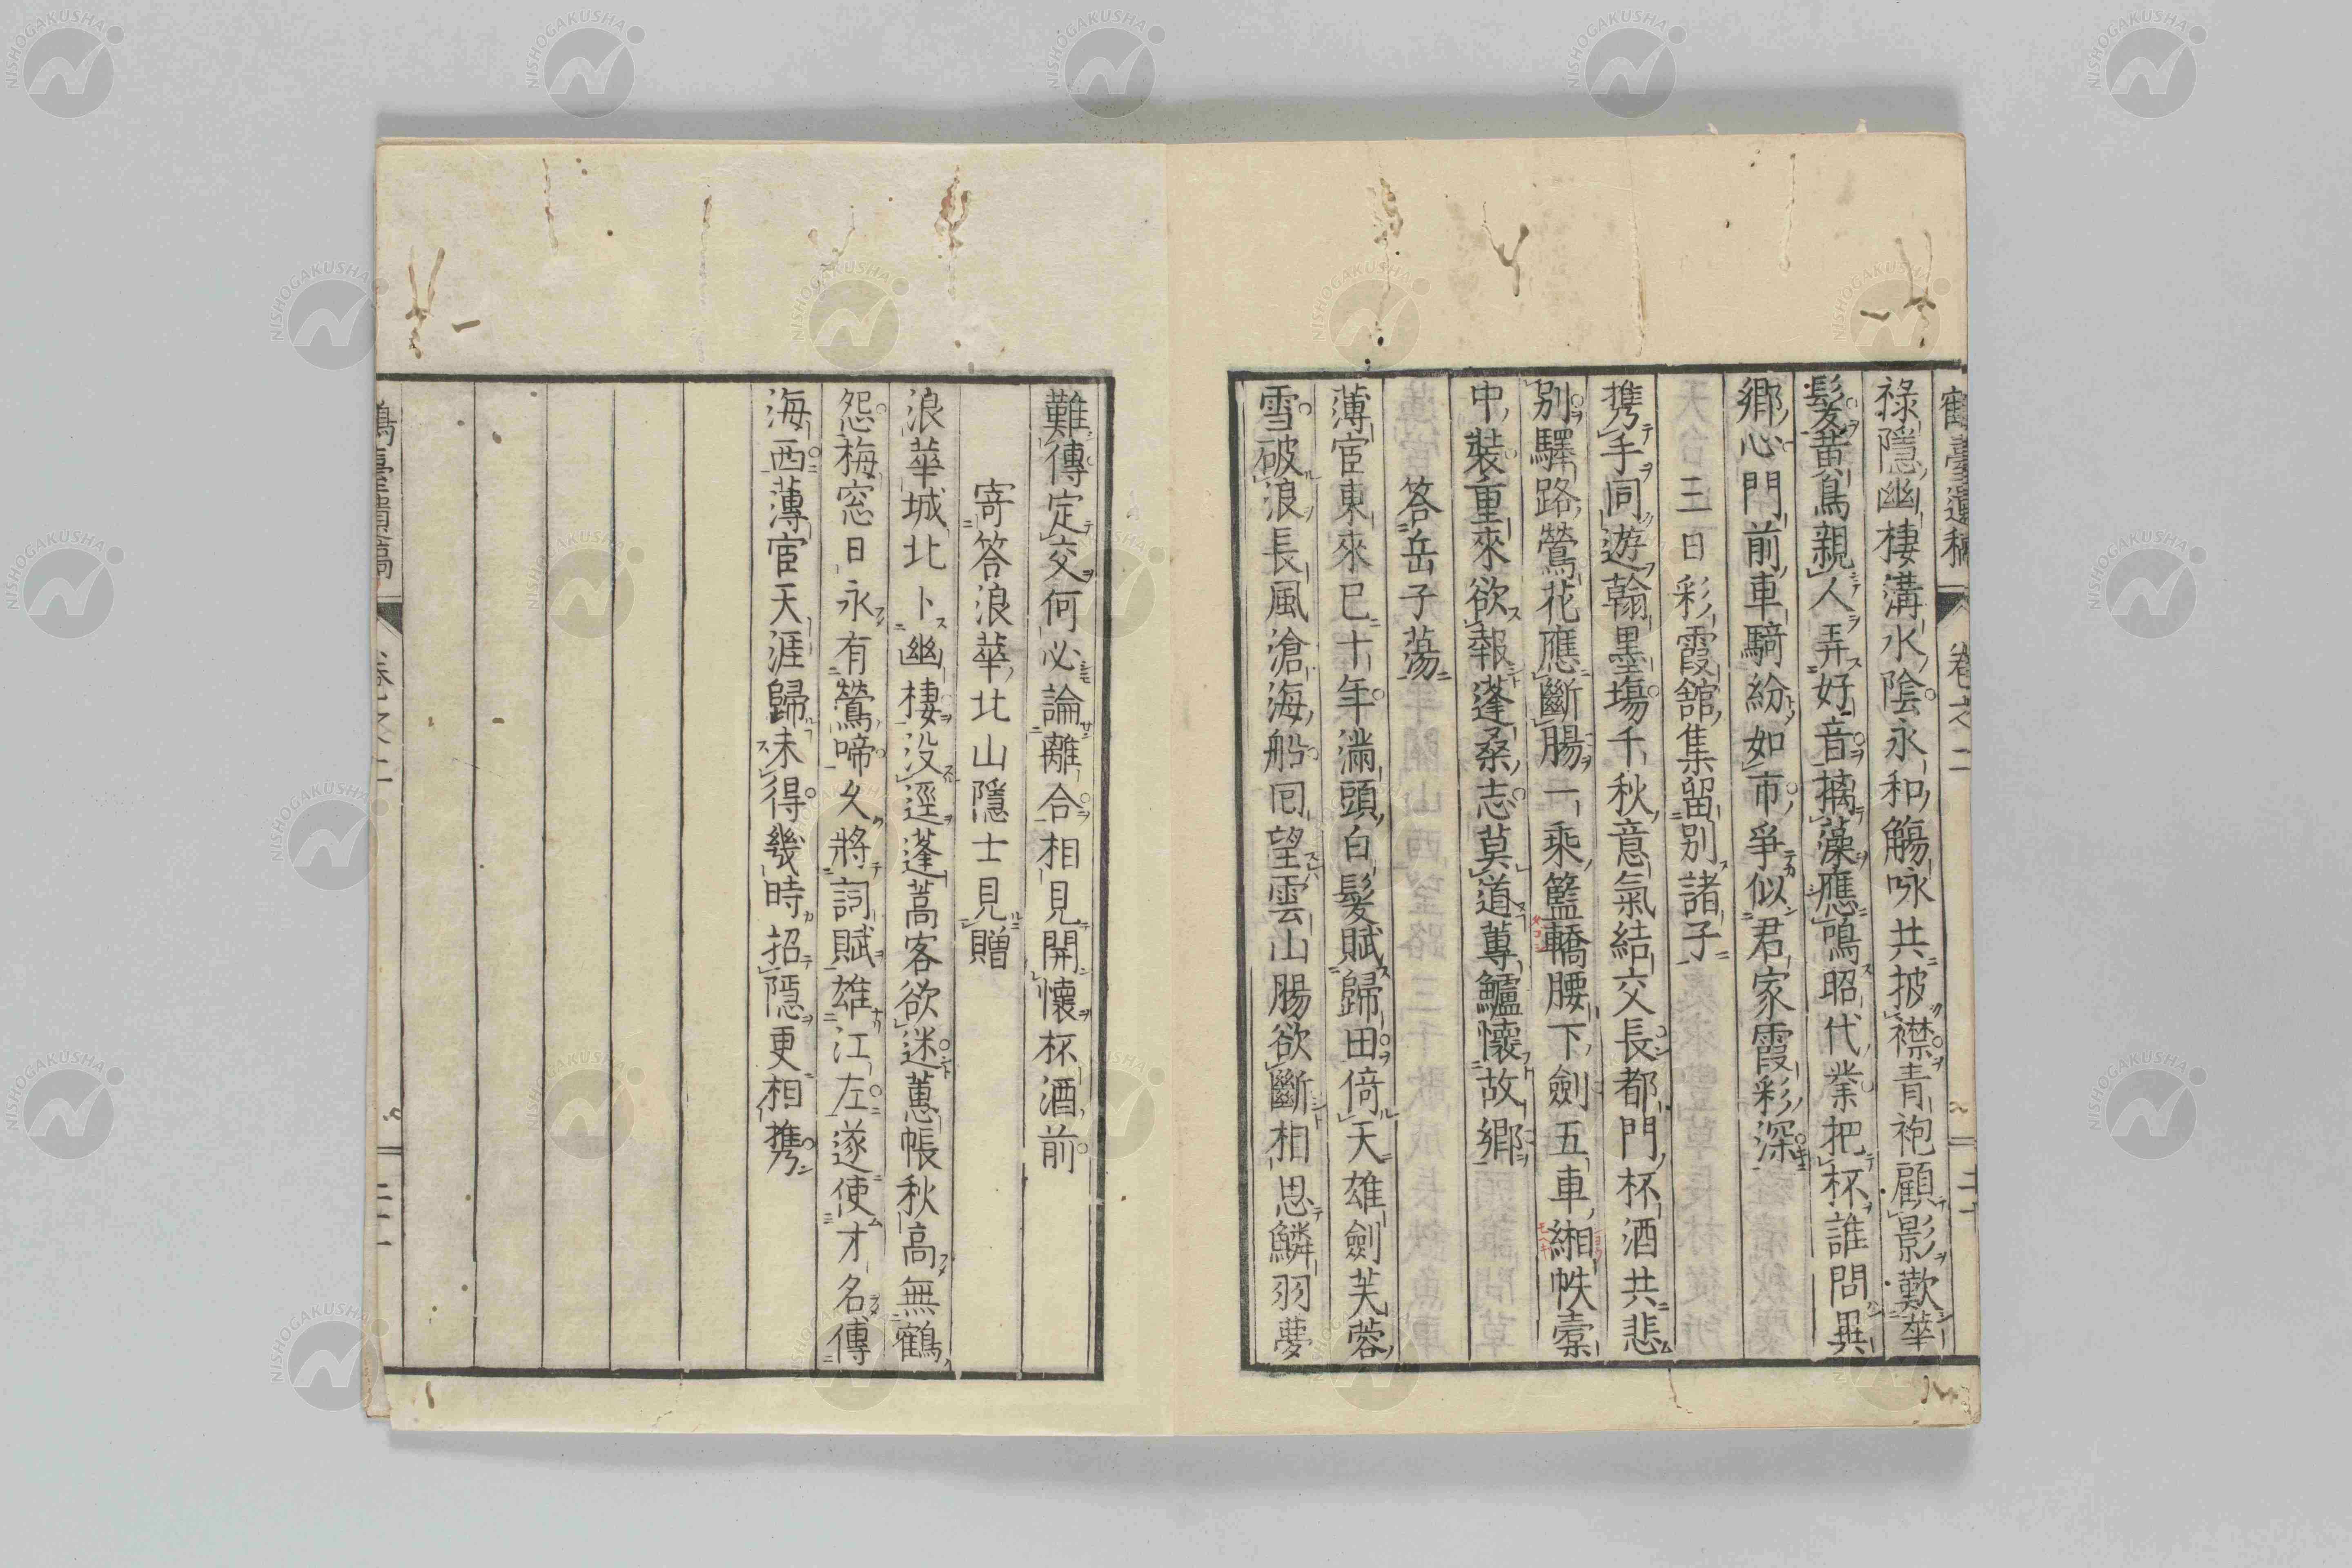 鶴臺遺稿 卷之二
祿隱幽棲溝水陰永和觴咏共披襟青袍顧影歎華
髮黃鳥親人弄好音摛藻應鳴昭代業把杯誰問異
鄉心門前車騎紛如市爭似君家霞彩深
三日彩霞館集留別諸子
携手同遊翰墨場千秋意氣結交長都門杯酒共悲
別驛路鶯花應斷腸一乘籃轎腰下劍五車緗帙橐
中裝重來欲報蓬桑志莫道蓴鱸懷故鄉
答岳子蕩
薄宦東來已十年滿頭白髮賦歸田倚天雄劍芙蓉
雪破浪長風滄海船囘望雲山腸欲斷相思鱗羽夢
難傳定交何必論離合相見開懷杯酒前
寄答浪華北山隱士見贈
浪華城北卜幽棲沒逕蓬蒿客欲迷蕙帳秋高無鶴
怨梅窓日永有鶯啼久將詞賦雄江左遂使才名傳
海西薄宦天涯歸未得幾時招隱更相携
鶴臺遺稿 卷之二
NISHOGAKUSHA